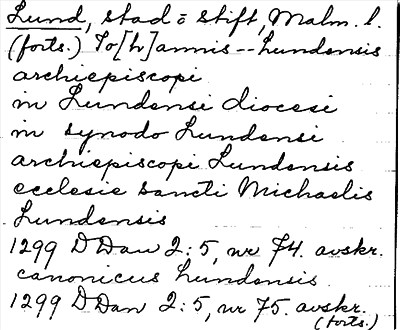 Lund, stad o stift, Malm. l.
(forts.) Jo[h]annis -- Lundensis
archiepiscopi
in Lundensi diocesi
in synodo Lundensi
archiepiscopi Lundensis
ecclesie sancti Michaelis
Lundensis
1299 DDan 2:5, nr 74. avskr.
canonicus Lundensis
1299 DDan 2:5, nr 75. avskr.
(forts.)